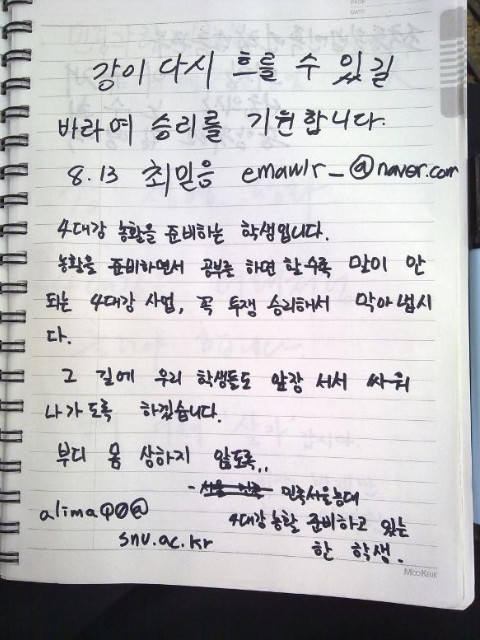 강이 다시 흐를 수 있길
바라며 승리를 기원합니다.
8.13 최믿음 emawlr_@naver.com
4대강 농활을 준비하는 학생입니다.
농활을 준비하면서 공부를 하면 할수록 말이 안
되는 4대강 사업, 꼭 투쟁 승리해서 막아냅시
다.
그 길에 우리 학생들도 앞장 서서 싸워
나가도록 하겠습니다.
부디 몸 상하지 않도록..
- 민족서울농대
4대강 농활 준비하고 있는
한 학생.
snu.ac.kr
MOOKEUK